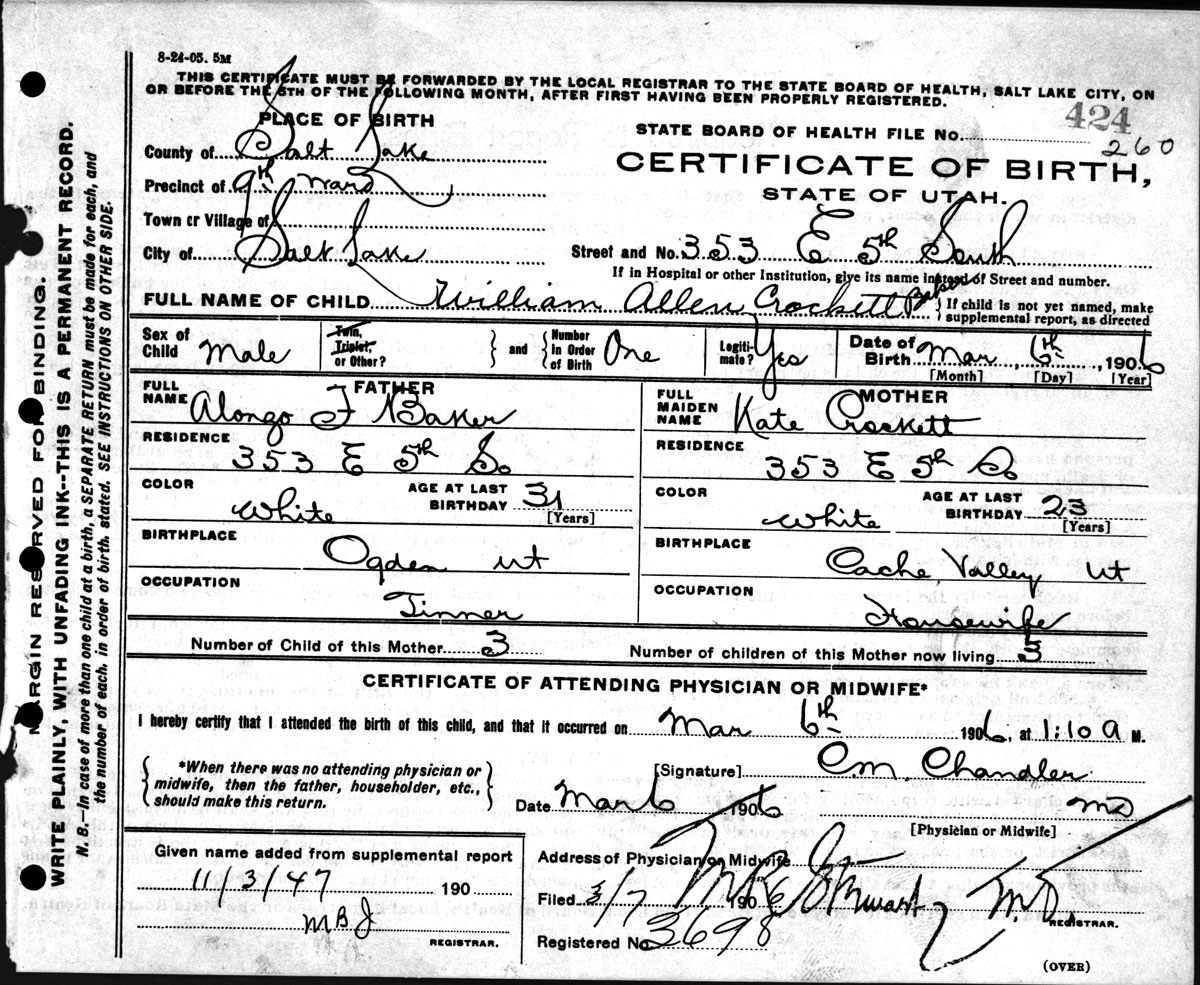 8-24-05. 5M
THIS CERTIFICATE MUST BE FORWARDED BY THE LOCAL REGISTRAR TO THE STATE BOARD OF HEALTH, SALT LAKE CITY, ON
OR BEFORE THE 5TH OF THE FOLLOWING MONTH, AFTER FIRST HAVING BEEN PROPERLY REGISTERED.
424
PLACE OF BIRTH
STATE BOARD OF HEALTH FILE No. 260
County of Salt Lake
CERTIFICATE OF BIRTH,
Precinct of 9th Ward
STATE OF UTAH.
Town or Village of
City of Salt Lake
Street and No. 353 E 5th South
If in Hospital or other Institution, give its name instead of Street and number.
FULL NAME OF CHILD William Allen Crockett Baker
{If child is not yet named, make
supplemental report, as directed
Sex of Child Male
Twin, Triplet, or Other?
and
Number in Order of Birth One
Legitimate? Yes
Date of Birth Mar 6th, 1906
[Month] [Day] [Year]
FATHER
FULL NAME Alonzo F Baker
MOTHER
FULL MAIDEN NAME Kate Crockett
RESIDENCE 353 E 5th So
RESIDENCE 353 E 5th So
COLOR White
AGE AT LAST BIRTHDAY 31 [Years]
COLOR White
AGE AT LAST BIRTHDAY 23 [Years]
BIRTHPLACE Ogden Ut
BIRTHPLACE Cache Valley Ut
OCCUPATION Tinner
OCCUPATION Housewife
Number of Child of this Mother 3
Number of children of this Mother now living 3
CERTIFICATE OF ATTENDING PHYSICIAN OR MIDWIFE*
I hereby certify that I attended the birth of this child, and that it occurred on Mar 6th 1906, at 1:10 a M.
{*When there was no attending physician or
midwife, then the father, householder, etc.,
should make this return.}
[Signature] C M, Chandler
Date Mar 6 1906
MD
[Physician or Midwife]
Given name added from supplemental report
11/3/47 190
MBJ
REGISTRAR.
Address of Physician or Midwife
Filed 3/7 1906 Stewart M.D.
REGISTRAR.
Registered No 3698
(OVER)
MARGIN RESERVED FOR BINDING.
WRITE PLAINLY, WITH UNFADING INK--THIS IS A PERMANENT RECORD.
N. B.—In case of more than one child at a birth, a SEPARATE RETURN must be made for each, and
the number of each, in order of birth, stated. SEE INSTRUCTIONS ON OTHER SIDE.